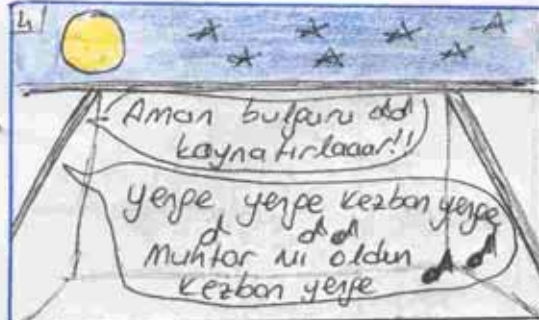 4
Aman bulguru da
kaynatırlaaar!!
yenge yenge Kezban yenge
Muhtar mı oldun
Kezban yenge